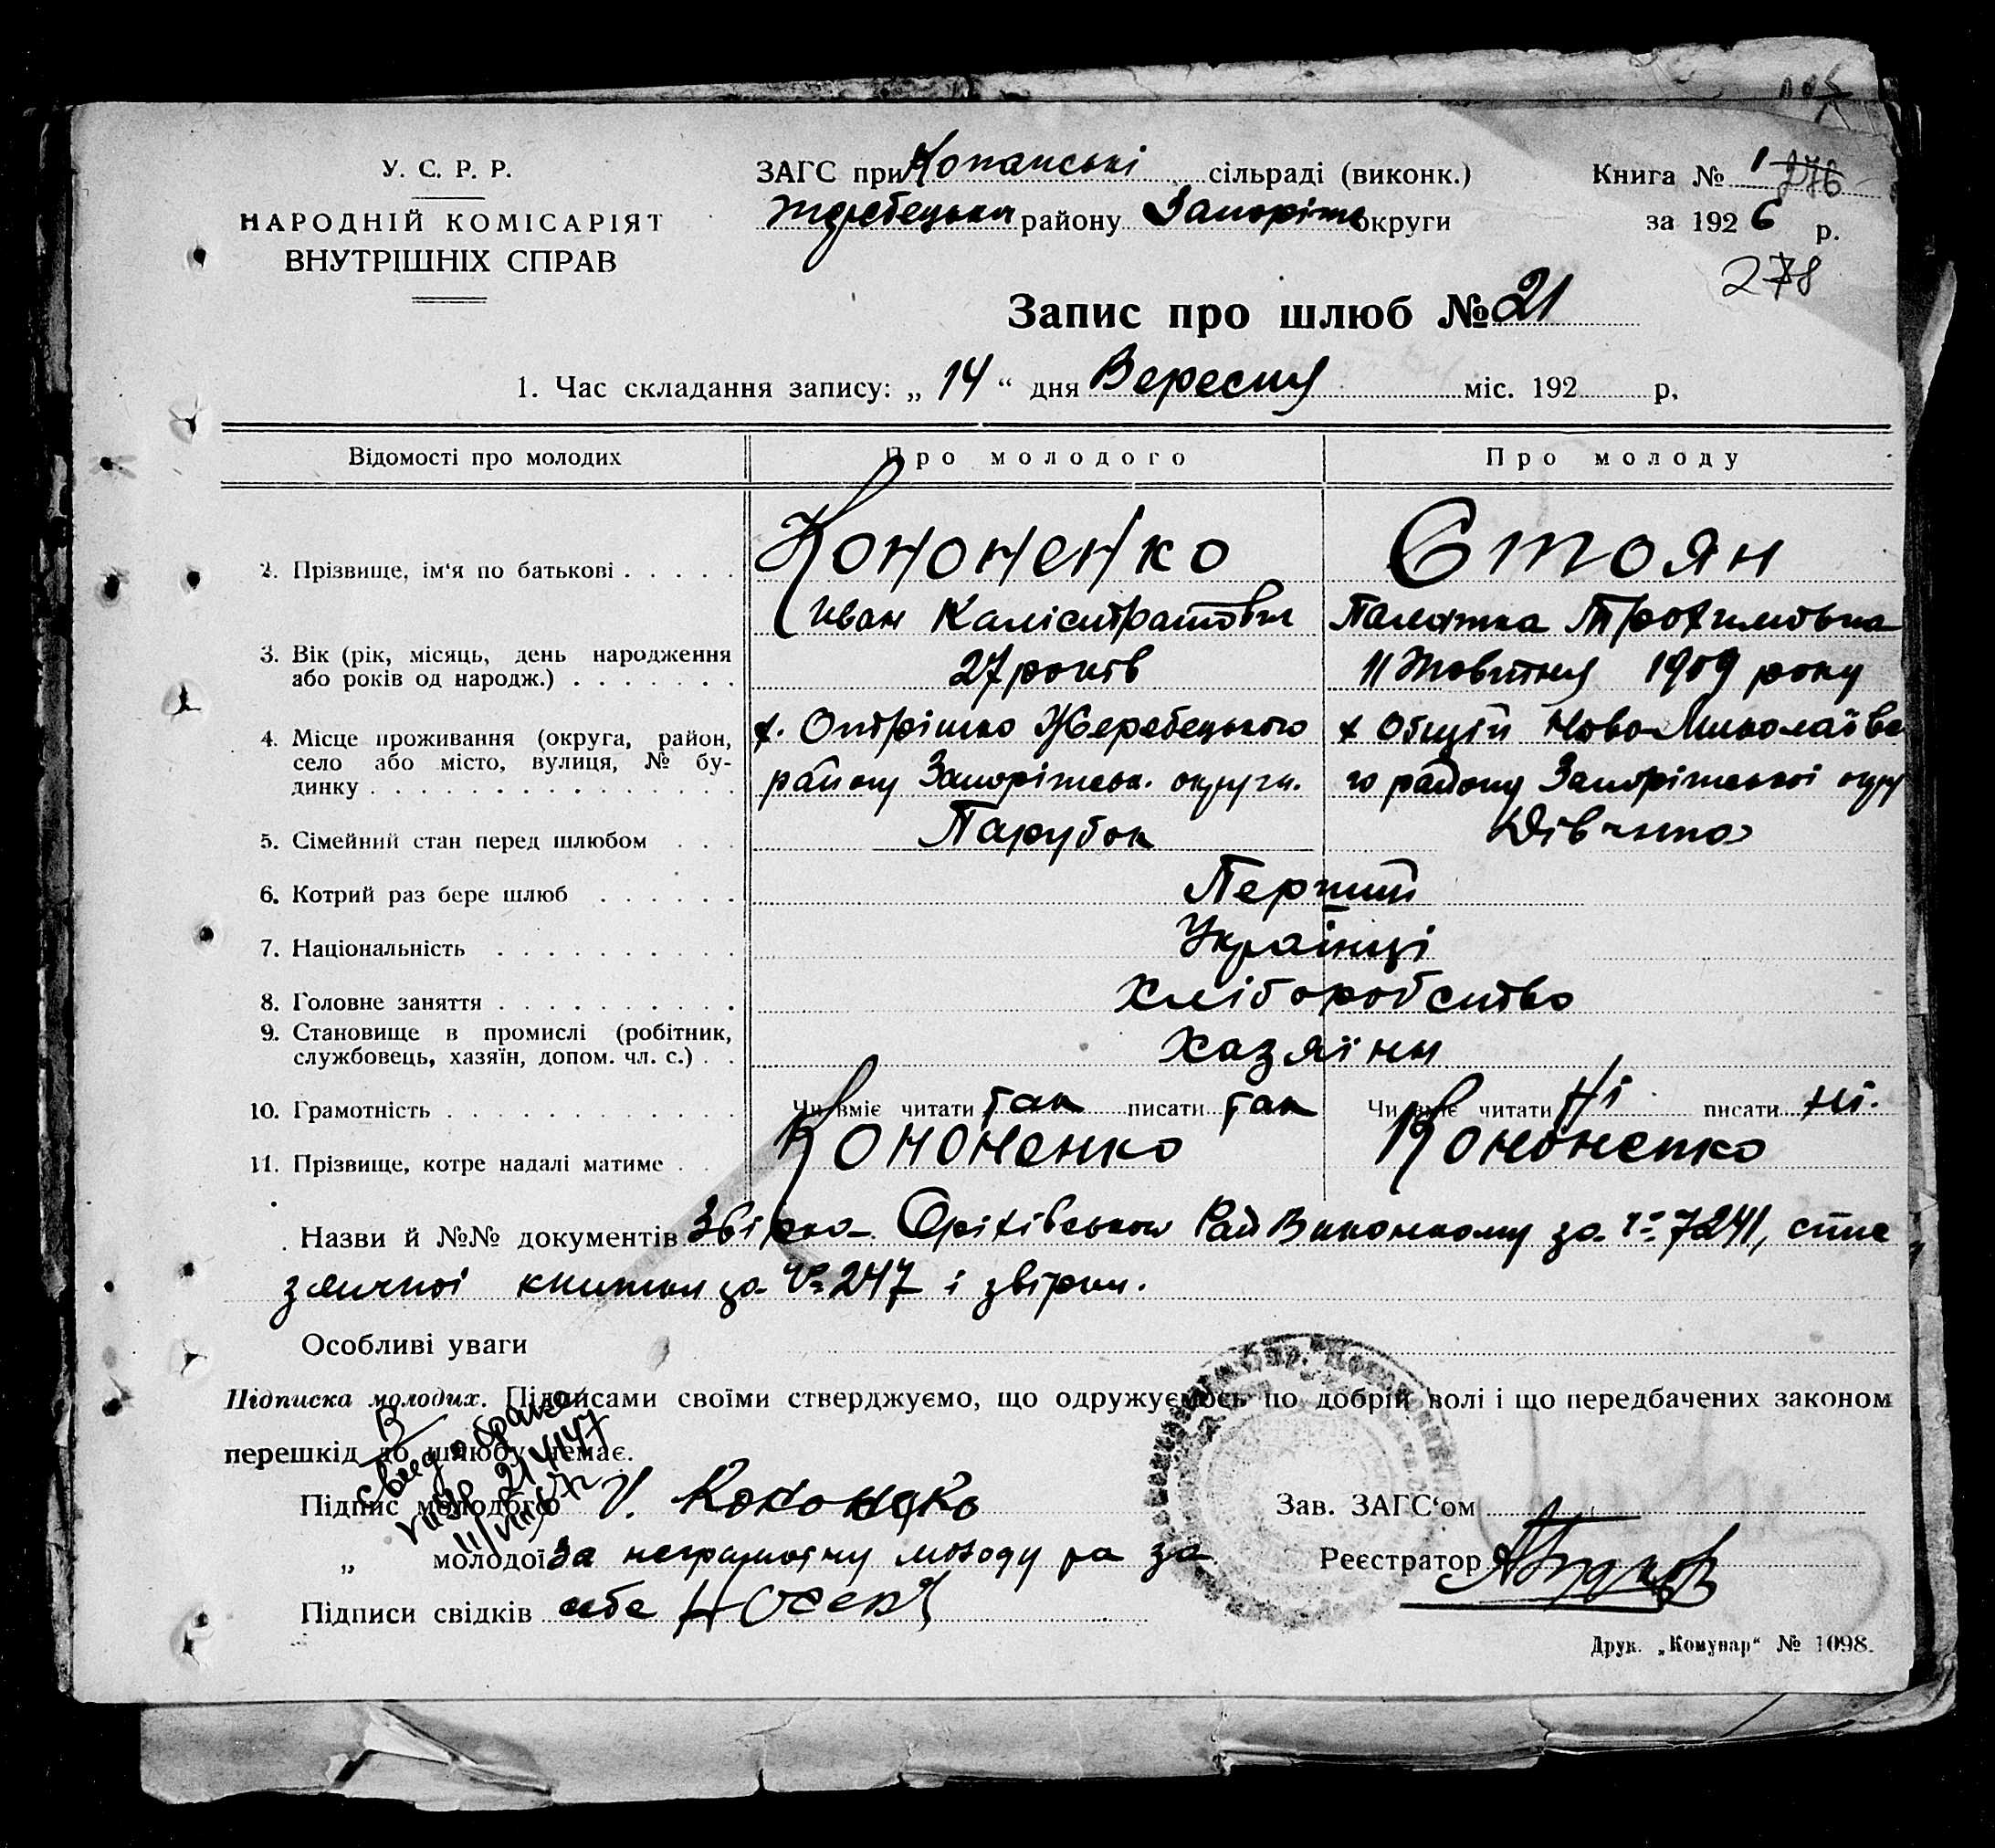 У. С. Р. Р.
НАРОДНІЙ КОМІСАРІЯТ
ВНУТРІШНІХ СПРАВ
ЗАГС при Копанські сільраді (виконк.)
Жеребецьки району Запоріж округи
Книга № 1 276
за 1926 р.
278
Запис про шлюб № 21
1. Час складання запису: „ 14 “ дня Вересня міс. 192 р.
Відомості про молодих Про молодого Про молоду
2. Прізвище, ім'я по батькові Кононенко Стоян
Иван Калістратович Палажка Трохимовна
3. Вік (рік, місяць, день народження
або років од народж.) 27 років 11 Жовтня 1909 року
4. Місце проживання (округа, район,
село або місто, вулиця, № бу-
динку
х. Жеребецького х Общій Ново-Миколаївс
району Запоріжськ. округи. го району Запоріжської окру
5. Сімейний стан перед шлюбом Парубок Дівчина
6. Котрий раз бере шлюб Перший
7. Національність Українці
8. Головне заняття Хліборобство
9. Становище в промислі (робітник,
службовець, хазяїн, допом. чл. с.) Хазяіни
10. Грамотність Чи вміє читати так писати так Чи вміє читати Ні писати ні.
11. Прізвище, котре надалі матиме Кононенко Кононенко
Назви й №№ документів Звірка Оріхівського РайВиконкому за № 7241,
книжки за № 247 і звірки.
Особливі уваги
Підписка молодих. Підписами своїми стверджуємо, що одружуємось по добрій волі і що передбачених законом
перешкід до шлюбу немає.
Підпис молодого И. Кононенко
„ молодої За неграмотну молоду ра за
Підписи свідків себе
Зав. ЗАГС'ом
Реєстратор
Друк. „Комунар“ № 1098.